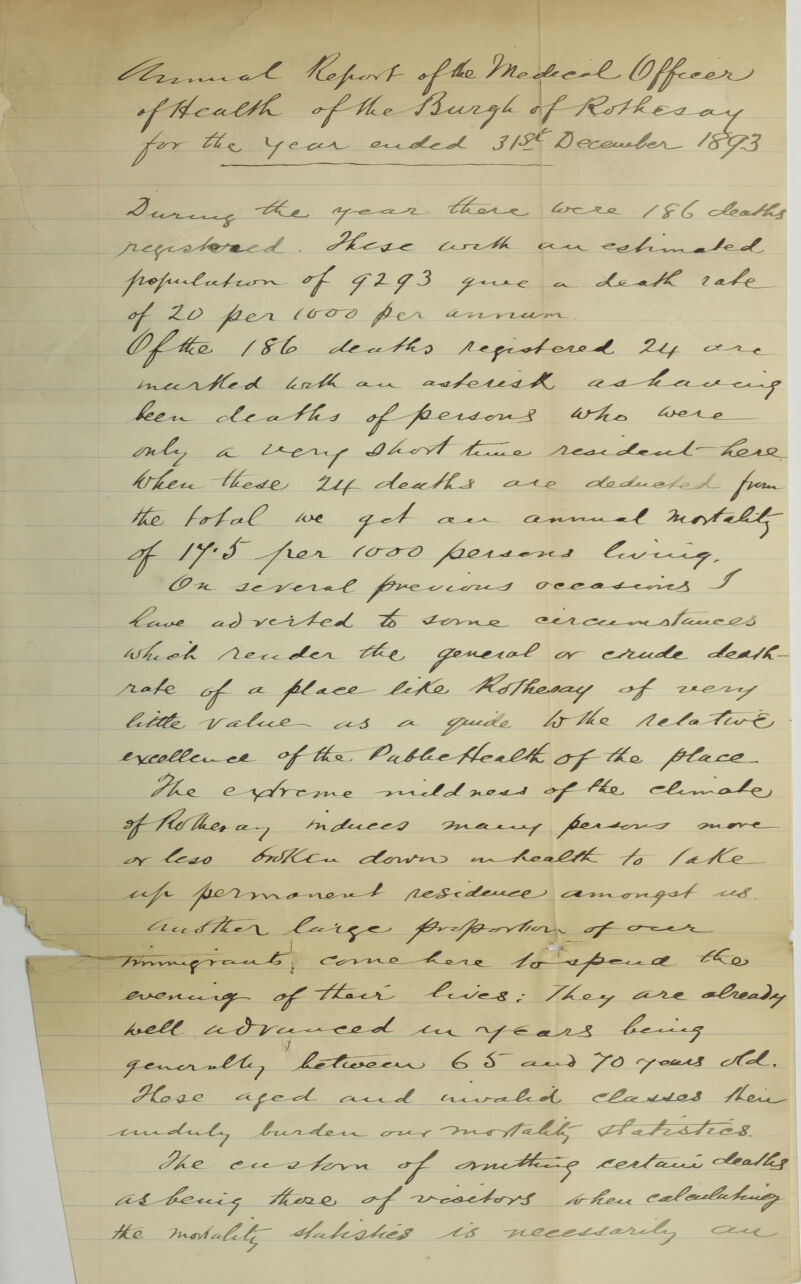 Annual Report of the Medical Officer
of Health of the Burgh of Rothesay
for the year ended 31st December 1893
During the year there were 186 deaths
registered. These with an estimated
population of 9293 give a death rate
of 20 per 1000 per annum.
Of the 186 deaths registered 24 are
marked with an asterisk as having
been deaths of persons who were
only a very short time resident here.
When these 24 deaths are deducted from
the total we get an annual mortality
of 17.5 per 1000 persons living.
On several previous occasions I
have adverted to some circumstances
which render the general or crude death-
rate of a place like Rothesay of very
little value as a guide to the relative
excellence of the Public Health of the place.
The extreme mildness of the climate
of Rothesay induces many persons more
or less broken down in health to take
up permanent residence amongst us.
Another large proportion of our
immigrants come here to spend the
evening of their lives: They are already
well advanced in years being
generally between 65 and 70 years old.
These aged and invalid classes then
unduly burden our mortality statistics.
The custom of omitting certain deaths
as being those of visitors when calculating
the mortality statistics is necessarily an